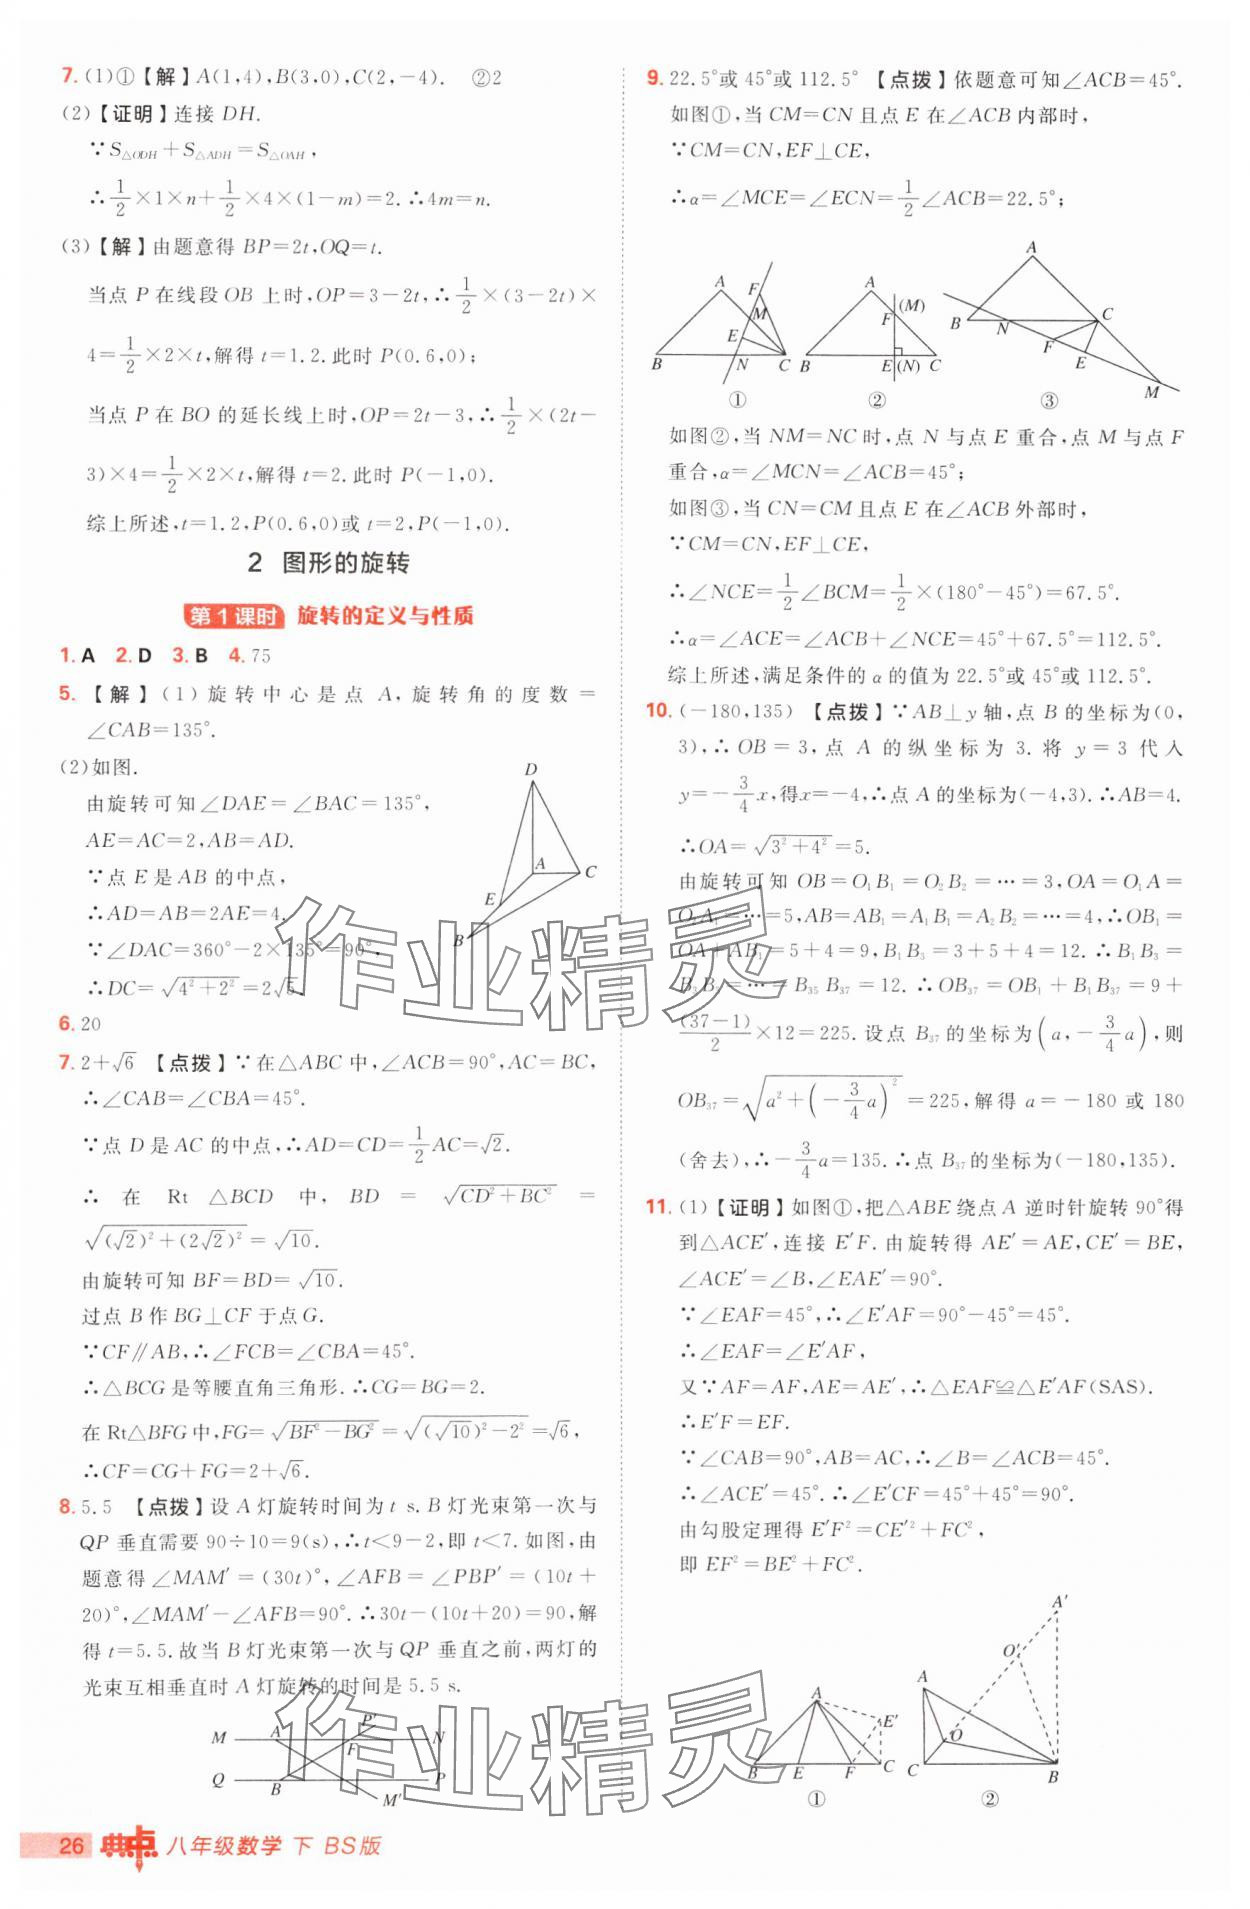 7. (1)①【解】A(1,4),B(3,0),C(2,-4). ②2
(2)【证明】连接 DH.
∵S△ODH+S△ADH=S△OAH,
∴1/2×1×n+1/2×4×(1-m)=2.∴4m=n.
(3)【解】由题意得 BP=2t,OQ=t.
当点 P 在线段 OB 上时,OP=3-2t,∴1/2×(3-2t)×
4=1/2×2×t,解得 t=1.2.此时 P(0.6,0);
当点 P 在 BO 的延长线上时,OP=2t-3,∴1/2×(2t-
3)×4=1/2×2×t,解得 t=2.此时 P(-1,0).
综上所述,t=1.2,P(0.6,0)或 t=2,P(-1,0).
2 图形的旋转
第1课时 旋转的定义与性质
1. A 2. D 3. B 4. 75
5. 【解】(1)旋转中心是点 A,旋转角的度数=
∠CAB=135°.
(2)如图.
由旋转可知∠DAE=∠BAC=135°,
AE=AC=2,AB=AD.
∵点 E 是 AB 的中点,
∴AD=AB=2AE=4.
∵∠DAC=360°-2×135°=90°,
∴DC=√(4²+2²)=2√5.
D
A
C
E
B
6. 20
7. 2+√6 【点拨】∵在△ABC 中,∠ACB=90°,AC=BC,
∴∠CAB=∠CBA=45°.
∵点 D 是 AC 的中点,∴AD=CD=1/2AC=√2.
∴ 在 Rt △BCD 中, BD = √(CD²+BC²) =
√((√2)²+(2√2)²)=√10.
由旋转可知 BF=BD=√10.
过点 B 作 BG⊥CF 于点 G.
∵CF∥AB,∴∠FCB=∠CBA=45°.
∴△BCG 是等腰直角三角形.∴CG=BG=2.
在 Rt△BFG 中,FG=√(BF²-BG²)=√((√10)²-2²)=√6,
∴CF=CG+FG=2+√6.
8. 5.5 【点拨】设 A 灯旋转时间为 t s. B 灯光束第一次与
QP 垂直需要 90÷10=9(s),∴t<9-2,即 t<7. 如图,由
题意得∠MAM′=(30t)°,∠AFB=∠PBP′=(10t+
20)°,∠MAM′-∠AFB=90°.∴30t-(10t+20)=90,解
得 t=5.5.故当 B 灯光束第一次与 QP 垂直之前,两灯的
光束互相垂直时 A 灯旋转的时间是 5.5 s.
M A P′ N
F
Q B P
M′
9. 22.5°或 45°或 112.5° 【点拨】依题意可知∠ACB=45°.
如图①,当 CM=CN 且点 E 在∠ACB 内部时,
∵CM=CN,EF⊥CE,
∴α=∠MCE=∠ECN=1/2∠ACB=22.5°;
A F M E B N C
①
A F (M) B E (N) C
②
A B N C F E M
③
如图②,当 NM=NC 时,点 N 与点 E 重合,点 M 与点 F
重合,α=∠MCN=∠ACB=45°;
如图③,当 CN=CM 且点 E 在∠ACB 外部时,
∵CM=CN,EF⊥CE,
∴∠NCE=1/2∠BCM=1/2×(180°-45°)=67.5°.
∴α=∠ACE=∠ACB+∠NCE=45°+67.5°=112.5°.
综上所述,满足条件的 α 的值为 22.5°或 45°或 112.5°.
10. (-180,135) 【点拨】∵AB⊥y 轴,点 B 的坐标为(0,
3),∴OB=3,点 A 的纵坐标为 3. 将 y=3 代入
y=-3/4x,得x=-4,∴点 A 的坐标为(-4,3).∴AB=4.
∴OA=√(3²+4²)=5.
由旋转可知 OB=O₁B₁=O₂B₂=…=3,OA=O₁A=
O₂A₁=…=5,AB=AB₁=A₁B₁=A₂B₂=…=4,∴OB₁=
OA+AB₁=5+4=9,B₁B₃=3+5+4=12. ∴B₁B₃=
B₃B₅=…=B₃₅B₃₇=12. ∴OB₃₇=OB₁+B₁B₃₇=9+
(37-1)/2×12=225. 设点 B₃₇ 的坐标为(a,-3/4a),则
OB₃₇=√(a²+(-3/4a)²)=225,解得 a=-180 或 180
(舍去),∴-3/4a=135.∴点 B₃₇ 的坐标为(-180,135).
11. (1)【证明】如图①,把△ABE 绕点 A 逆时针旋转 90°得
到△ACE′,连接 E′F. 由旋转得 AE′=AE,CE′=BE,
∠ACE′=∠B,∠EAE′=90°.
∵∠EAF=45°,∴∠E′AF=90°-45°=45°.
∴∠EAF=∠E′AF,
又∵AF=AF,AE=AE′,∴△EAF≌△E′AF(SAS).
∴E′F=EF.
∵∠CAB=90°,AB=AC,∴∠B=∠ACB=45°.
∴∠ACE′=45°.∴∠E′CF=45°+45°=90°.
由勾股定理得 E′F²=CE′²+FC²,
即 EF²=BE²+FC².
A E′ B E F C
①
A′ O′ A O C B
②
作业精灵
作业精灵
26 典中点 八年级数学 下 BS版